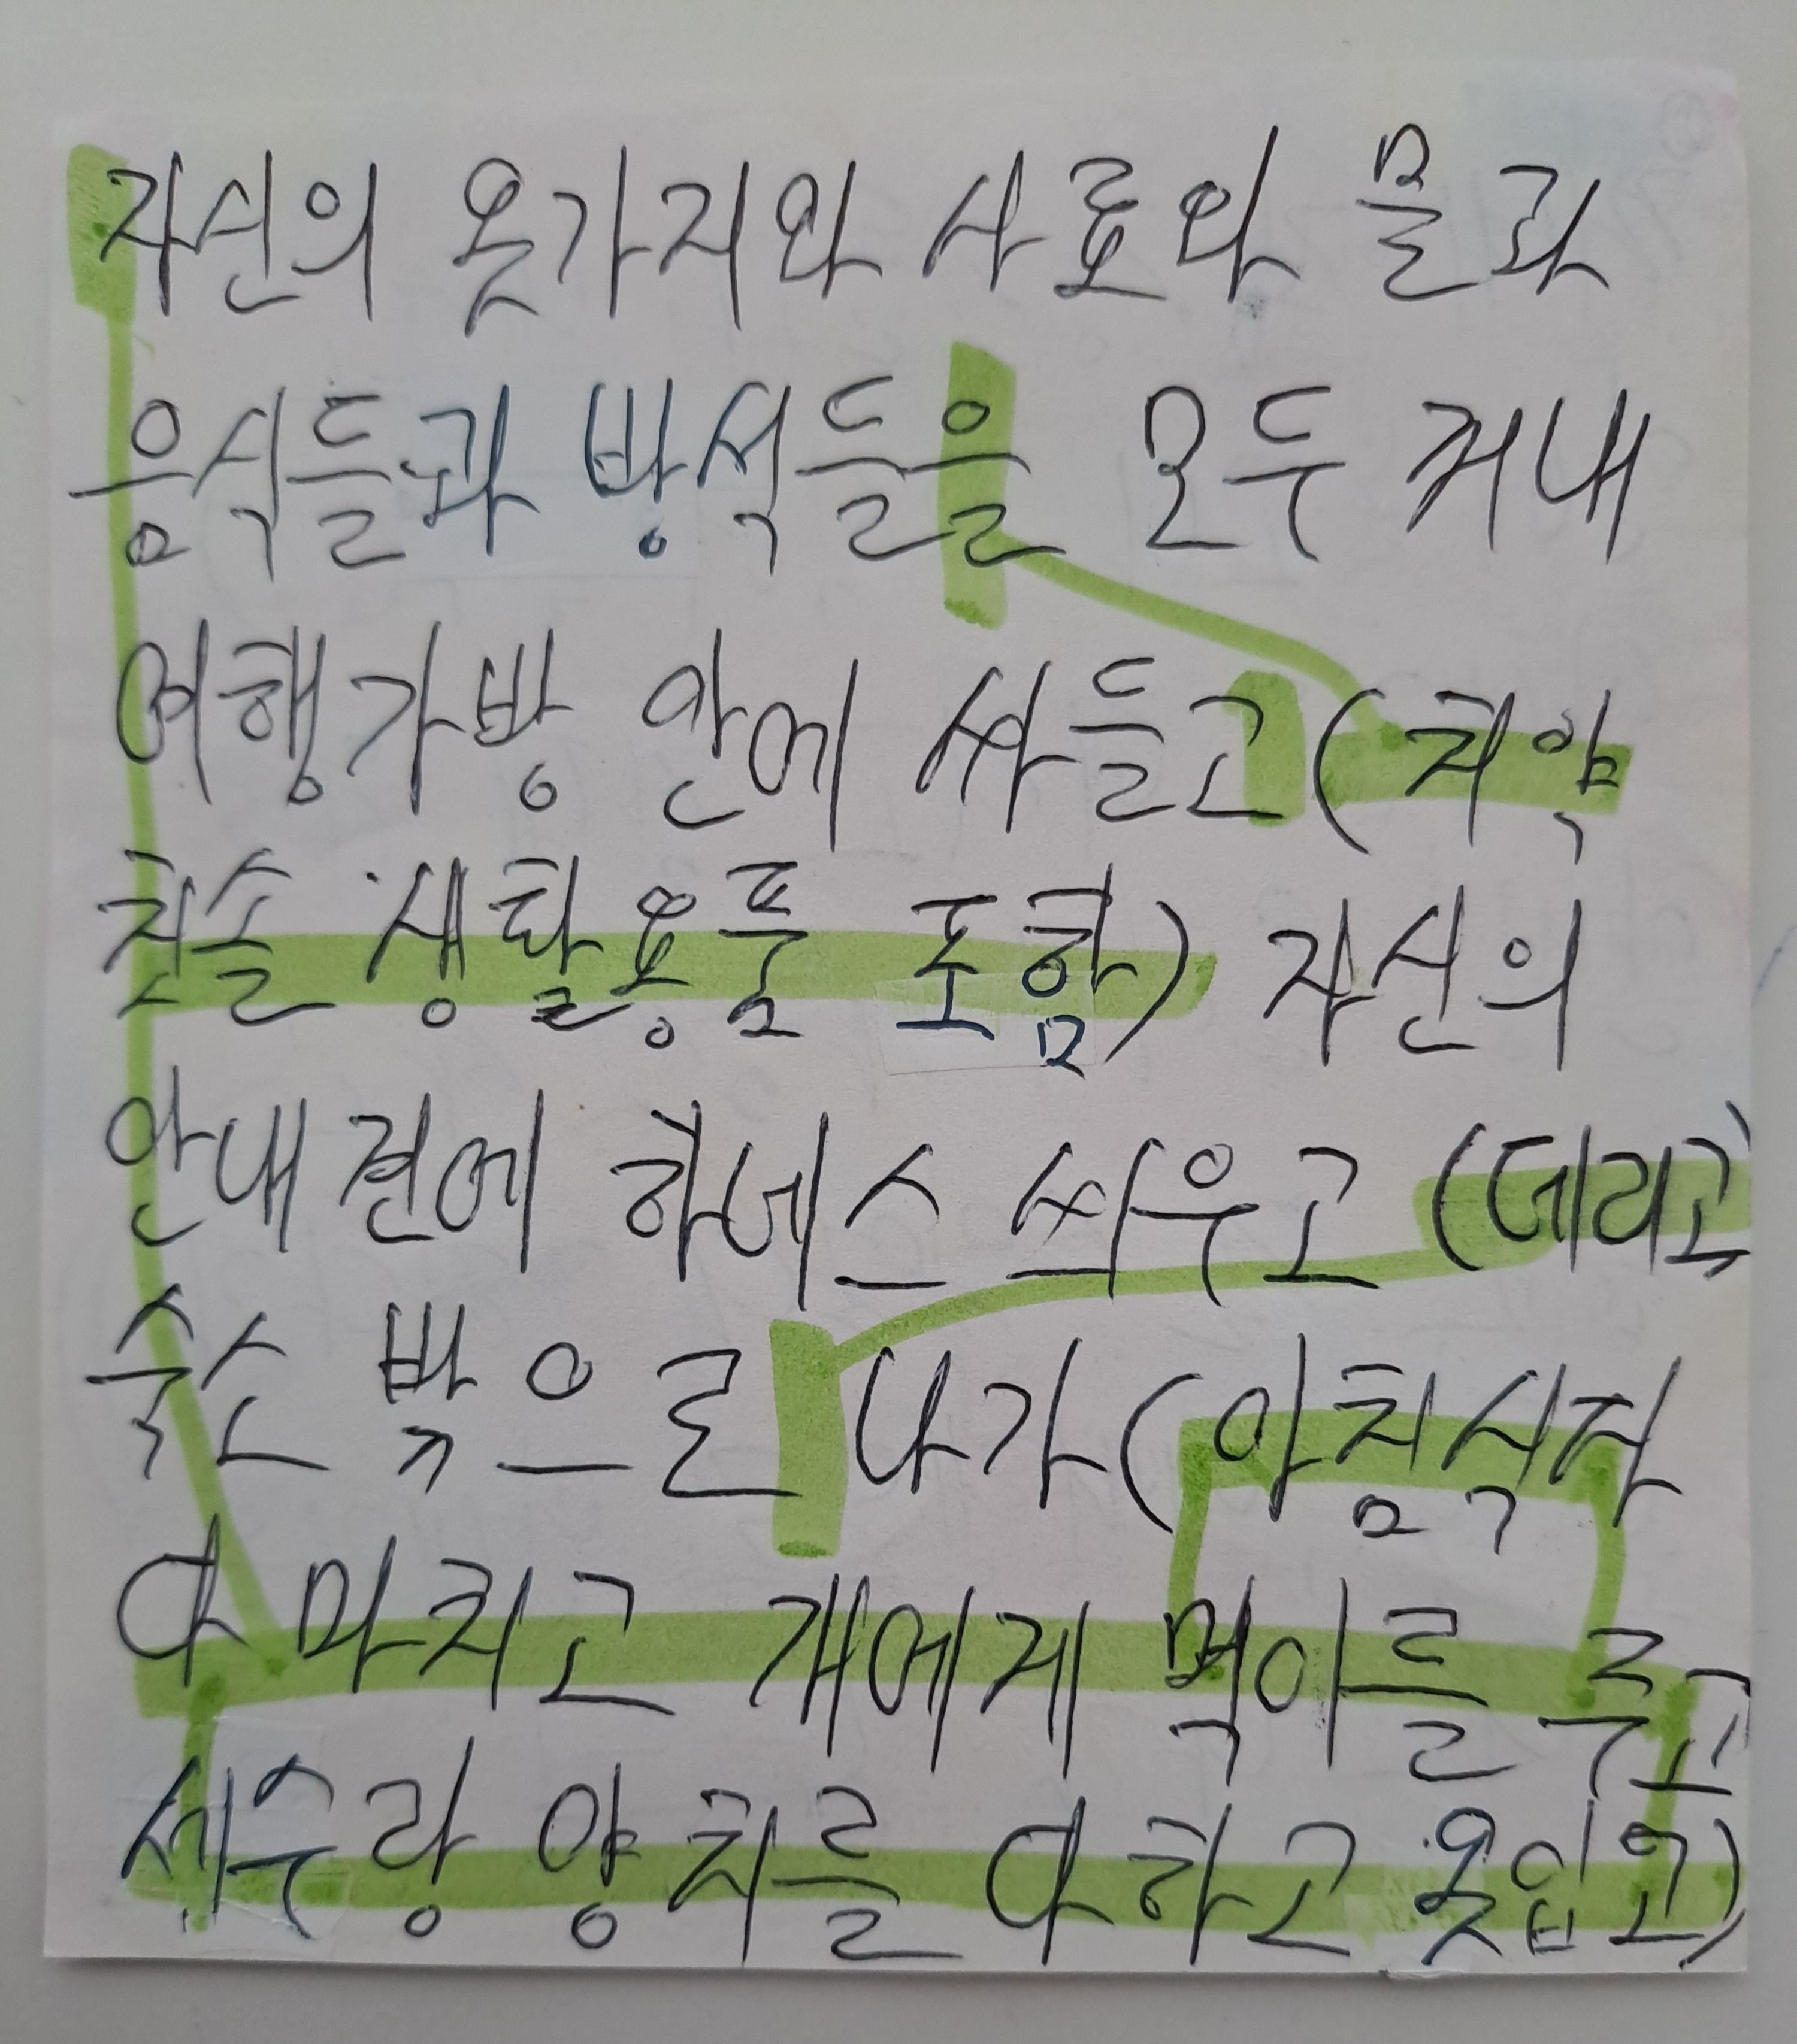 자신의 옷가지와 사료와 물과
음식들과 방석들을 모두 꺼내
여행가방 안에 싸들고(치약
칫솔 생활용품 포함) 자신의
안내견에 하네스 씌우고 (데리고)
숙소 밖으로 나가(아침식사
다 마치고 개에게 먹이를 주고
세수랑 양치를 다하고 옷입고)